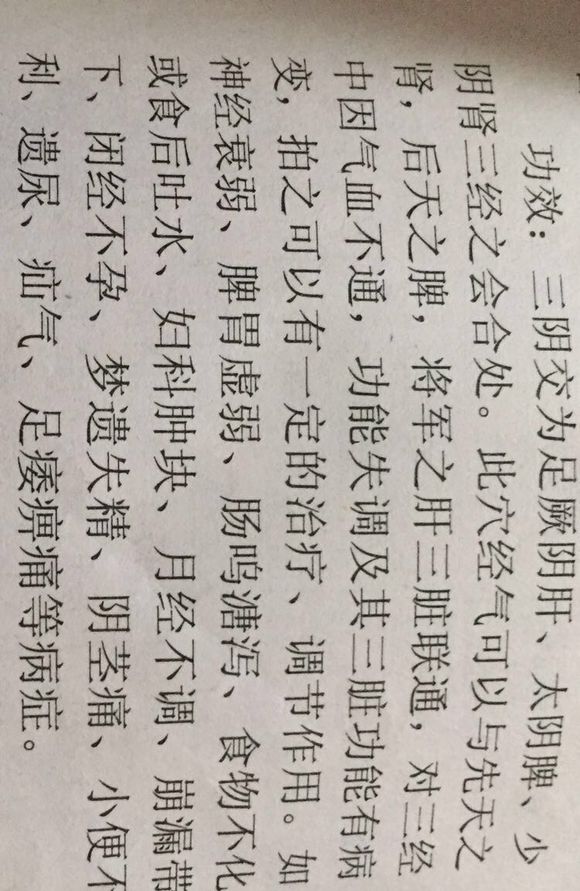 功效：三阴交为足厥阴肝、太阴脾、少
阴肾三经之会合处。此穴经气可以与先天之
肾，后天之脾，将军之肝三脏联通，对三经
中因气血不通，功能失调及其三脏功能有病
变，拍之可以有一定的治疗、调节作用。如
神经衰弱、脾胃虚弱、肠鸣溏泻、食物不化
或食后吐水、妇科肿块、月经不调、崩漏带
下、闭经不孕、梦遗失精、阴茎痛、小便不
利、遗尿、疝气、足痿痹痛等病症。